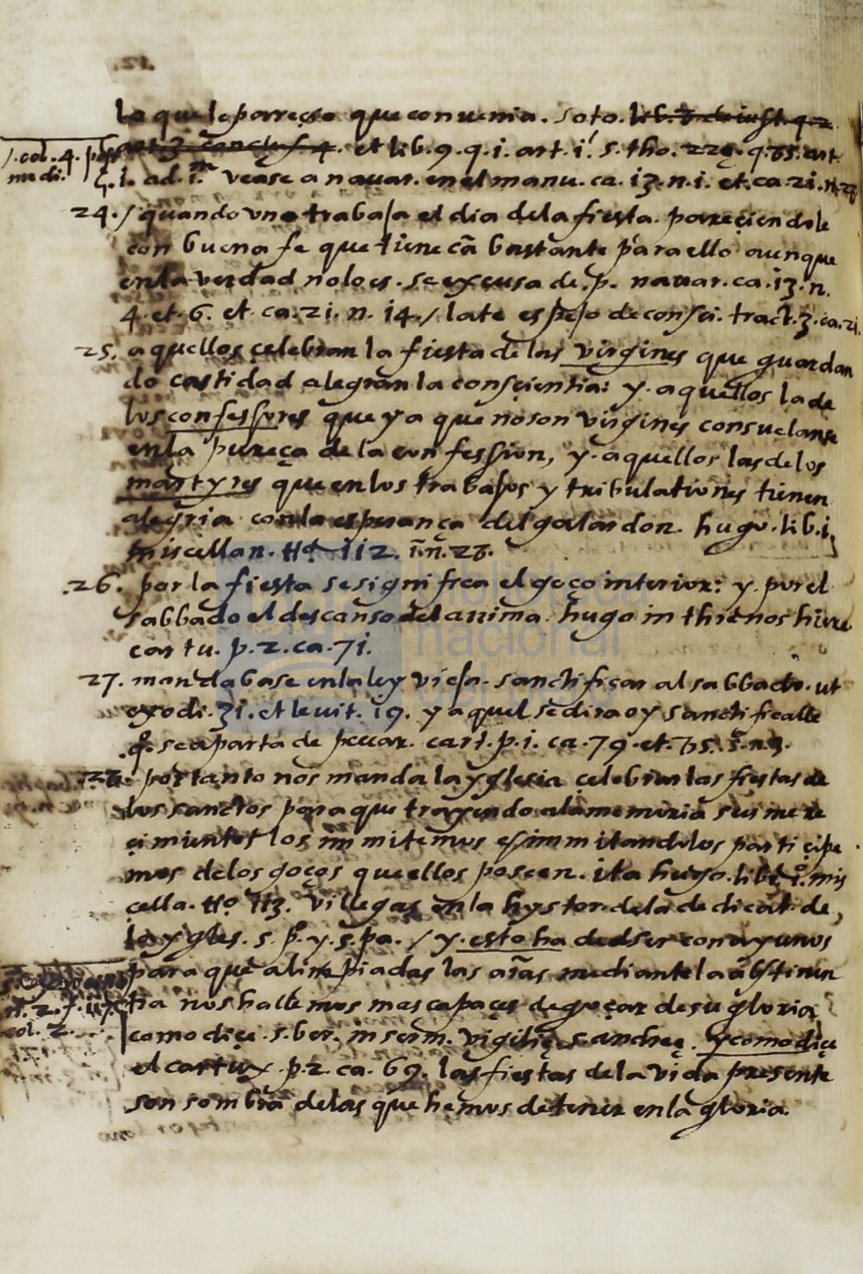 lo que le parresçe que convenia. soto. lib. 3. de iust. q. 2
art. 3. conclus. 4. et lib. 9. q. i. art. i. s. tho. 22ȩ. q. art
/. col. 4.
medi.
5. i. ad. i.m vease a navar. en el manu. ca. i3. n. i. et. ca. 2i. n.
24. / quando uno trabaja el dia de la fiesta. pareçiendole
con buena fe que tiene cā bastante para ello aunque
en la verdad no lo es. se excusa de. p. navar. ca. i3. n.
4. et. 6. et. ca. 2i. n. i4. / late espejo de consci. tract. 3. ca. 2i.
25. aquellos celebran la fiesta de las virgines que guardan
do castidad alegran la consçientia: y. aquellos la de
los confessores que ya que no son virgines consuelanse
en la pureça de la confession, y. aquellos las de los
martyres que en los trabajos y tribulationes tienen
alegria con la esperança del galardon. hugo. lib. i.
miscellan. tto. 112. in. 23.
26. por la fiesta se significa el goço interior: y. por el
sabbado el descanso del anima. hugo in threnos hiere.
cartu. p. 2. ca. 7i.
27. mandabase en la ley vieja. sanctificar al sabbado. ut
exodi. 3i. et levit. 19. y aquel se dira oy sanctificalle
q. se aparta de peccar. cart. p. i. ca. 79. et.
28. por tanto nos manda la yglesia çelebrar las fiestas de
los sanctos para que trayendo a la memoria sus mere
çimientos los immitemos e immitandolos partiçipe
mos de los goços que ellos poseen. ita hugo. lib. i. mis
cella. tto. 113. villegas en la hystor. de la dedicat. de
la ygles. s. p. y. s. pa. / y. esto ha de de ser con ayunos
para que alimpiadas las aīas mediante la abstinen
n. 2. f.
col. 2.
tia nos hallemos mas capaçes de goçar de su gloria
como diçe. s. ber. in serm. vigilię. s. andreę. y como diçe
el cartux. p. 2. ca. 69. las fiestas de la vida presente
son sombra de las que hemos de tener en la gloria.